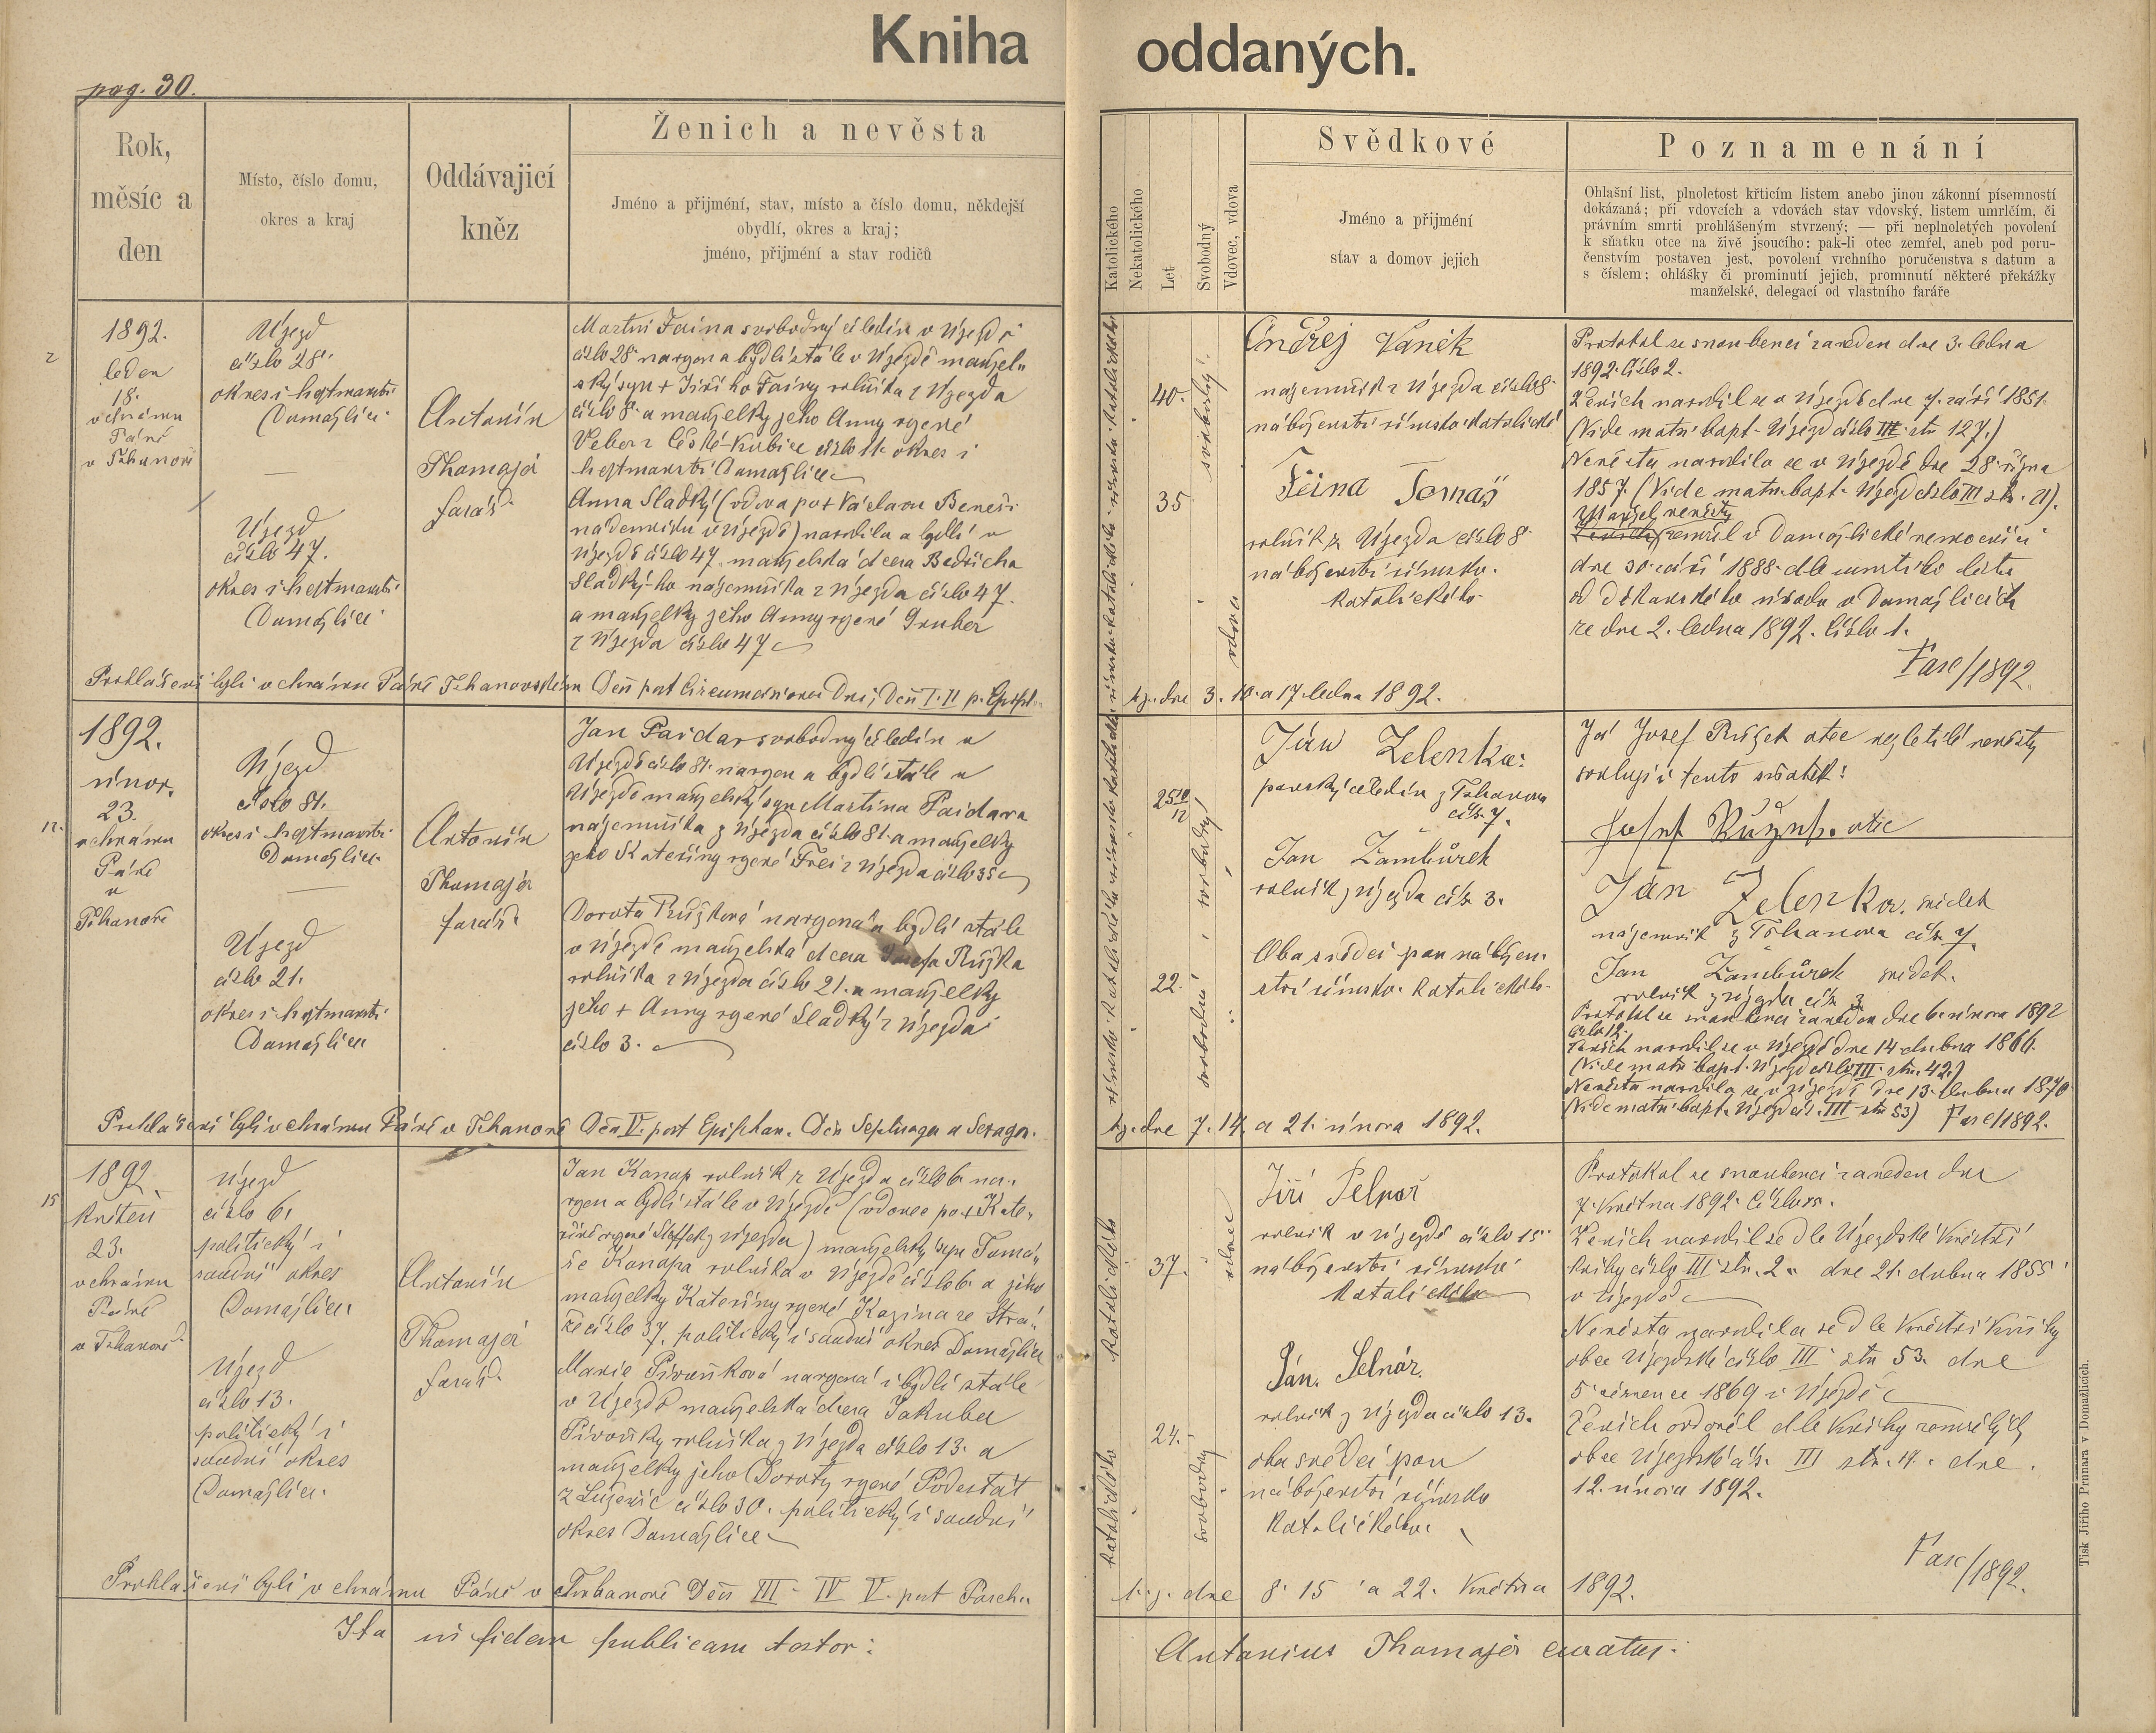 Kniha oddaných.
pag. 30.
Rok,
měsíc a
den
Místo, číslo domu,
okres a kraj
Oddávajicí
kněz
Ženich a nevěsta
Jméno a přijmení, stav, místo a číslo domu, někdejší
obydlí, okres a kraj;
jméno, přijmení a stav rodičů
Katolického
Nekatolického
Let
Svobodný
Vdovec, vdova
Svědkové
Jméno a přijmení
stav a domov jejich
Poznamenání
Ohlašní list, plnoletost křticím listem anebo jinou zákonní písemností
dokázaná; při vdovcích a vdovách stav vdovský, listem umrlčím, či
právním smrti prohlášeným stvrzený; — při neplnoletých povolení
k sňatku otce na živě jsoucího: pak-li otec zemřel, aneb pod poru-
čenstvím postaven jest, povolení vrchního poručenstva s datum a
s číslem; ohlášky či prominutí jejich, prominutí některé překážky
manželské, delegací od vlastního faráře
2
1892.
leden
18.
v chrámu
Páně
v Tihanově
Újezd
číslo 28.
okres i hejtmanství
Domažlice
Újezd
číslo 47.
okres i hejtmanství
Domažlice
Antonín
Thomajer
farář
Martin Faina svobodný čeledín v Újezdě
číslo 28. narozen a bydlí stále v Újezdě manžel-
ský syn + Jiřího Fainy rolníka z Újezda
číslo 8. a manželky jeho Anny rozené
Veber z České-Kubice číslo 11. okres i
hejtmanství Domažlice
Anna Sladký (vdova po + Václavu Beneši
nádeníku v Újezdě) narodila a bydlí v
Újezdě číslo 47. manželská dcera Bedřicha
Sladký-ho nájemníka z Újezda číslo 47.
a manželky jeho Anny rozené Gruber
z Újezda číslo 47
40.
35
svobodný
vdova
Ondřej Vaněk
nájemník z Újezda číslo 8.
náboženství římsko-katolické
Feina Tomáš
rolník z Újezda číslo 8
náboženství římsko-
katolického
Protokol se snoubenci zaveden dne 3. ledna
1892. číslo 2.
Ženich narodil se v Újezdě dne 7. září 1851.
(Vide matr. bapt. Újezd číslo III. str. 127.)
Nevěsta narodila se v Újezdě dne 28. října
1857. (Vide matr. bapt. Újezd číslo III str. 21).
Manžel nevěsty
zemřel v Domažlické nemocnici
dne 30. září 1888. dle umrtního listu
od děkanského úřadu v Domažlicích
ze dne 2. ledna 1892. číslo 1.
Fasc/1892
Prohlášeni byli v chrámu Páně Tihanovském Don post Circumcisionem Dni, Don I. II p. Epiph.
t.j. dne 3. 10. a 17. ledna 1892.
12.
1892.
únor.
23.
v chrámu
Páně
v
Tihanově
Újezd
číslo 81.
okres i hejtmanství
Domažlice
Újezd
číslo 21.
okres i hejtmanství
Domažlice
Antonín
Thomajer
farář
Jan Paidar svobodný čeledín v
Újezdě číslo 81. narozen a bydlí stále v
Újezdě manželský syn Martina Paidara
nájemníka z Újezda číslo 81. a manželky
jeho Kateřiny rozené Frei z Újezda číslo 35
Dorota Růžková narozená a bydlí stále
v Újezdě manželská dcera Josefa Růžka
rolníka z Újezda číslo 21. a manželky
jeho + Anny rozené Sladký z Újezda
číslo 3.
25 10/12
22.
svobodný
svobodná
Ján Zelenka:
panský čeledín z Tihanova
čís. 7.
Jan Zambůrek
rolník z Újezda čís. 3.
Oba svědci jsou nábožen-
ství římsko-katolického
Já Josef Růžek otec nezletilé nevěsty
svoluji v tento sňatek:
Josef Růžek. otec
Ján Zelenka. svědek
nájemník z Tihanova čís. 7.
Jan Zambůrek svědek.
rolník z Újezda čís. 3.
Protokol se snoubenci zaveden dne 6. února 1892
číslo 12.
Ženich narodil se v Újezdě dne 14. dubna 1866.
(Vide matr. bapt. Újezd číslo III. str. 42.)
Nevěsta narodila se v Újezdě dne 13. dubna 1870
(Vide matr. bapt. Újezd čís. III str. 53) Fasc/1892.
Prohlášeni byli v chrámu Páně v Tihanově Don V. post Epiphan. Don Septuages a Sexages.
t.j. dne 7. 14. a 21. února 1892.
15
1892
květen
23.
v chrámu
Páně
v Tihanově
Újezd
číslo 6.
politický i
soudní okres
Domažlice
Újezd
číslo 13.
politický i
soudní okres
Domažlice.
Antonín
Thomajer
farář.
Jan Konap rolník z Újezda číslo 6. na-
rozen a bydlí stále v Újezdě (vdovec po + Kate-
řině rozené Steffek z Újezda) manželský syn Tomá-
še Konapa rolníka v Újezdě číslo 6. a jeho
manželky Kateřiny rozené Kozina ze Strá-
že číslo 37. politický i soudní okres Domažlice
Marie Pivoňková narozená i bydlí stále
v Újezdě manželská dcera Jakuba
Pivoňky rolníka z Újezda číslo 13. a
manželky jeho Doroty rozené Podestát
z Luženic číslo 30. politický i soudní
okres Domažlice
katolického
katolického
37.
24.
vdovec
svobodný
Jiří Pelnař
rolník v Újezdě číslo 15
náboženství římsko
katolického
Ján. Selnár.
rolník z Újezda číslo 13.
oba svědci jsou
náboženství římsko
katolického.
Protokol se snoubenci zaveden dne
7. Května 1892. Číslo 15.
Ženich narodil se dle Újezdské Křestní
knihy číslo III str. 2. dne 21. dubna 1855
v Újezdě
Nevěsta narodila se dle Křestní Knihy
obce Újezdské číslo III. str. 53. dne
5. července 1869 v Újezdě
Ženich ovdověl dle Knihy zemřelých
obce Újezdské čís. III str. 14. dne
12. února 1892.
Fasc/1892.
Prohlášeni byli v chrámu Páně v Tihanově Don III - IV V. post Pasch.
t.j. dne 8. 15 a 22. Května 1892.
Ita in fidem publicam testor:
Antonius Thomajer curatus.
Tisk Jiřího Prunara v Domažlicích.